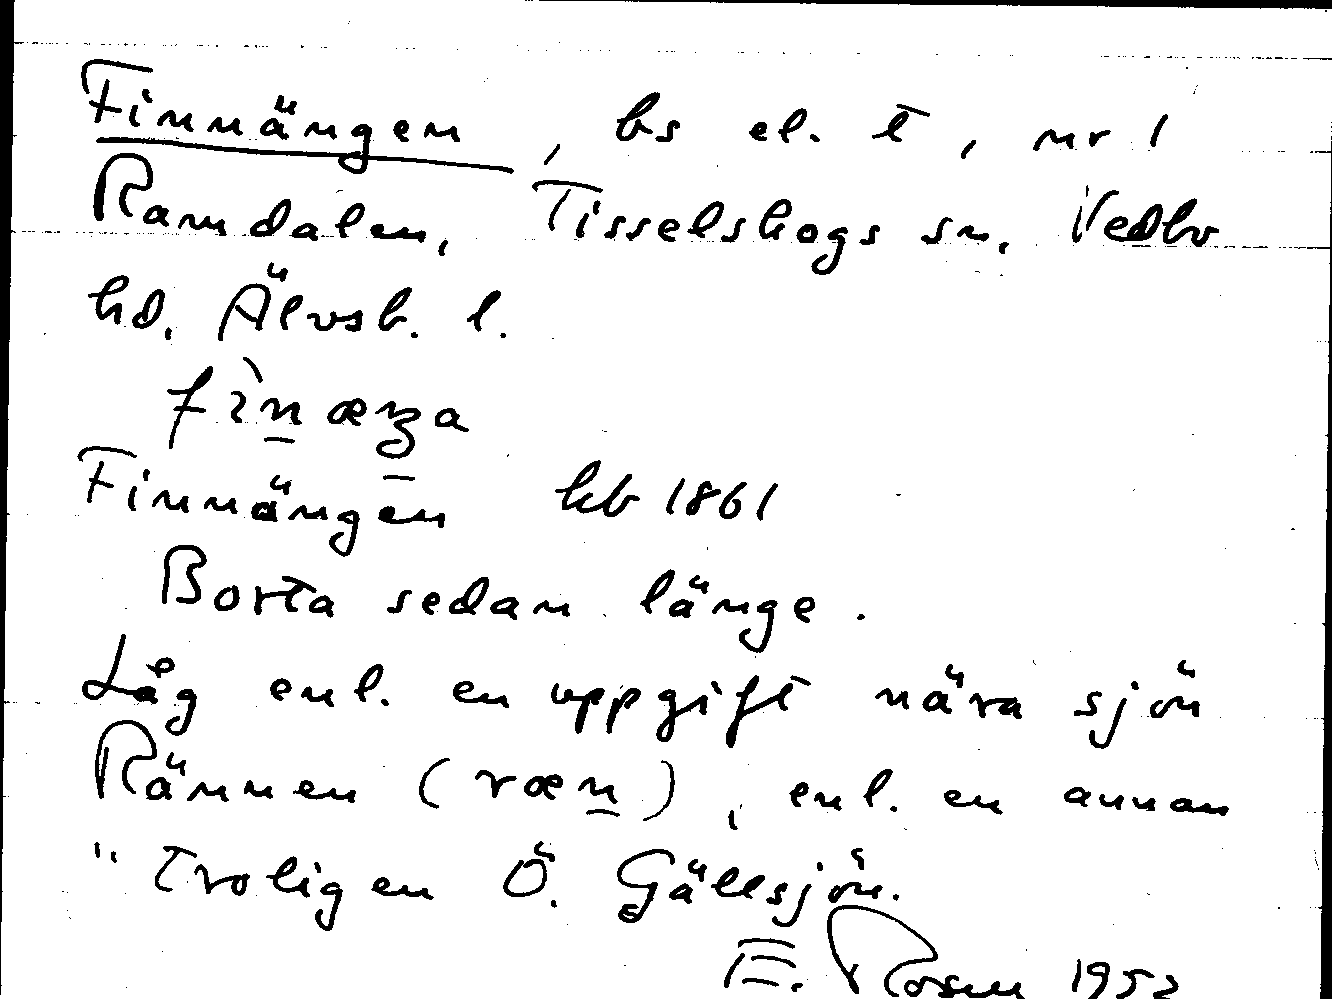 Finnängen, bs el. t, nr 1
Ramdalen, Tisselskogs sn, Vedbo
hd. Älvsb. l.
fìn̲æŋ̲a
Finnängen hb 1861
Borta sedan länge.
Låg enl. en uppgift nära sjön
Rännen (ræn̲), enl. en annan
" troligen Ö. Gällsjön.
E. Rosen 1952